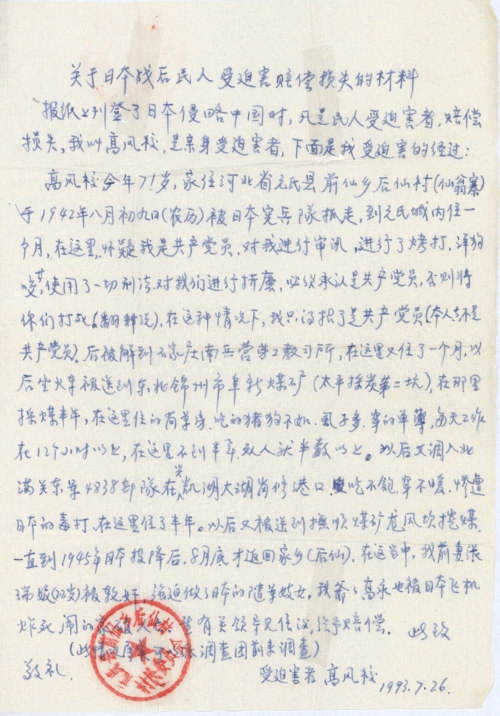 关于日本战后民人受迫害赔偿损失的材料
报纸上刊登了日本侵略中国时,凡是民人受迫害者,赔偿
损失,我叫高风校,是亲身受迫害者,下面是我受迫害的经过:
高风校今年71岁,家住河北省元氏县前仙乡后仙村(仙翁寨)
于1942年八月初九日(农历)被日本宪兵队抓走,到元氏城内住一
个月,在这里,怀疑我是共产党员,对我进行审讯,进行了烤打,洋狗
咬,使用了一切刑法对我们进行折磨,必须承认是共产党员,否则将
你们打死(翻译说),在这种情况下,我只得招了是共产党员(本人不是
共产党员)。后被解到石家庄南兵营劳工教习所,在这里又住了一个月,以
后坐火车被送到东北锦州市阜新煤矿(太平採炭第二坑),在那里
採煤半年,在这里住的简单房,吃的猪狗不如,虱子多,穿的单薄,每天工作
在12个小时以上,在这里不到半年,死人状半数以上。以后又调入北
满关东军4838部队在兴凯湖大湖岗修港口,吃不饱,穿不暖,惨遭
日本的毒打,在这里住了半年。以后又被送到抚顺煤矿龙凤坎挖煤,
一直到1945年日本投降后,8月底才返回家乡(后仙)。在这当中,我前妻张
瑞娥被敌奸,强迫做了日本的随军妓女,我爷爷高永也被日本飞机
炸死,闹的家破 有关领导见信议,给予赔偿。 此致
敬礼 调查团前来调查)
受迫害者 高风校 1993.7.26.